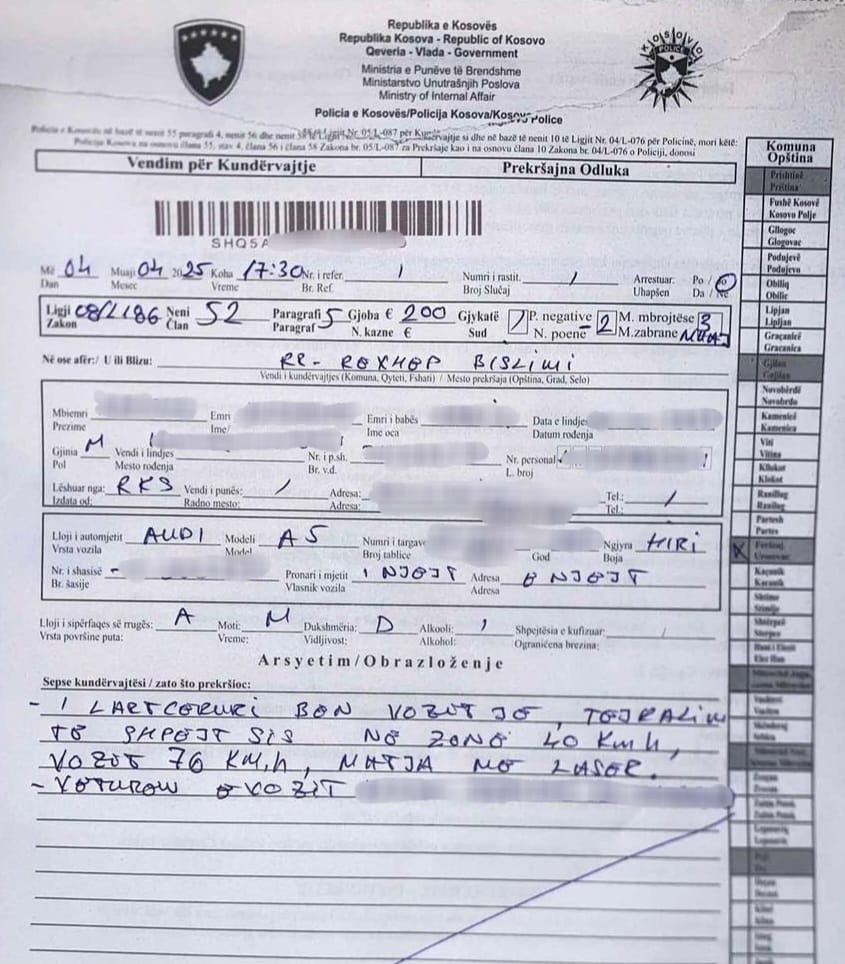 Republika e Kosovës
Republika Kosova - Republic of Kosovo
Qeveria - Vlada - Government
Ministria e Punëve të Brendshme
Ministarstvo Unutrašnjih Poslova
Ministry of Internal Affair
Policia e Kosovës/Policija Kosova/Kosovo Police
KOSOVO
POLICE
Policia e Kosovës në bazë të nenit 55 paragrafi 4, nenit 56 dhe nenit 58 të Ligjit Nr. 05/L-087 për Kundërvajtje si dhe në bazë të nenit 10 të Ligjit Nr. 04/L-076 për Policinë, mori këtë:
Policija Kosova na osnovu člana 55, stav 4, člana 56 i člana 58 Zakona br. 05/L-087 za Prekršaje kao i na osnovu člana 10 Zakona br. 04/L-076 o Policiji, donosi
Vendim për Kundërvajtje Prekršajna Odluka
SHQ5A
Më 04 Muaji 04 2025 Koha 17:30 Nr. i refer. / Numri i rastit. / Arrestuar: Po / Jo
Dan Mesec Vreme Br. Ref. Broj Slučaj Uhapšen Da / Ne
Ligji 08/L186 Neni 52 Paragrafi 5 Gjoba € 200 Gjykatë / P. negative 2 M. mbrojtëse 3
Zakon Član Paragraf N. kazne € Sud N. poene M.zabrane MUAJ
Në ose afër:/ U ili Blizu: RR- REXHEP BISLIMI
Vendi i kundërvajtjes (Komuna, Qyteti, Fshati) / Mesto prekršaja (Opština, Grad, Selo)
Mbiemri Emri Emri i babës Data e lindjes
Prezime Ime/ Ime oca Datum rođenja
Gjinia M Vendi i lindjes Nr. i p.sh. Nr. personal
Pol Mesto rođenja Br. v.d. L. broj
Lëshuar nga: RKS Vendi i punës: / Adresa: Tel.: /
Izdata od: Radno mesto: Adresa: Tel.:
Lloji i automjetit AUDI Modeli A5 Numri i targave Ngjyra HIRI
Vrsta vozila Model Broj tablice God Boja
Nr. i shasisë Pronari i mjetit I NJEJT Adresa E NJEJT
Br. šasije Vlasnik vozila Adresa
Lloji i sipërfaqes së rrugës: A Moti: M Dukshmëria: D Alkooli: / Shpejtësia e kufizuar: /
Vrsta površine puta: Vreme: Vidljivost: Alkohol: Ograničena brezina:
Arsyetim/Obrazloženje
Sepse kundërvajtësi / zato što prekršioc:
- I LARTCEKURI BEN VOZITJE, TEJKALIM
TE SHPEJTSIS NE ZONE 40 KM h,
VOZIT 76 KM,h, MATJA ME LASER.
- VETUREN E VOZIT
Komuna
Opština
Prishtinë
Priština
Fushë Kosovë
Kosovo Polje
Gllogoc
Glogovac
Podujevë
Podujevo
Obiliq
Obilic
Lipjan
Lipljan
Graçanicë
Gracanica
Gjilan
Gnjilane
Novobërdë
Novobrdo
Kamenicë
Kamenica
Viti
Vitina
Kllokot
Klokot
Ranillug
Ranilug
Partesh
Parteš
X Ferizaj
Uroševac
Kaçanik
Kacanik
Shtime
Štimlje
Shtërpcë
Hani i Elezit
Elez Han